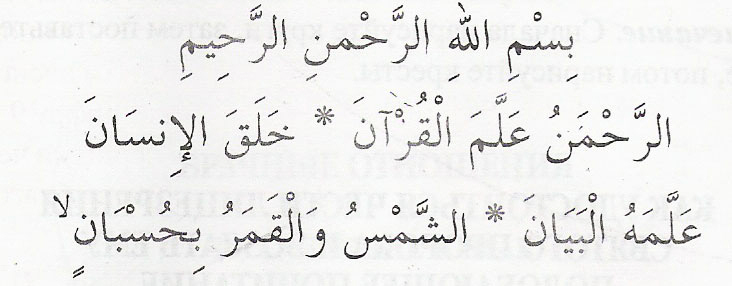 بِسْمِ اللهِ الرَّحْمنِ الرَّحِيمِ
الرَّحْمَنُ عَلَّمَ الْقُرْآنَ * خَلَقَ الإِنسَانَ
عَلَّمَهُ الْبَيَانَ * الشَّمْسُ وَالْقَمَرُ بِحُسْبَانٍ لا